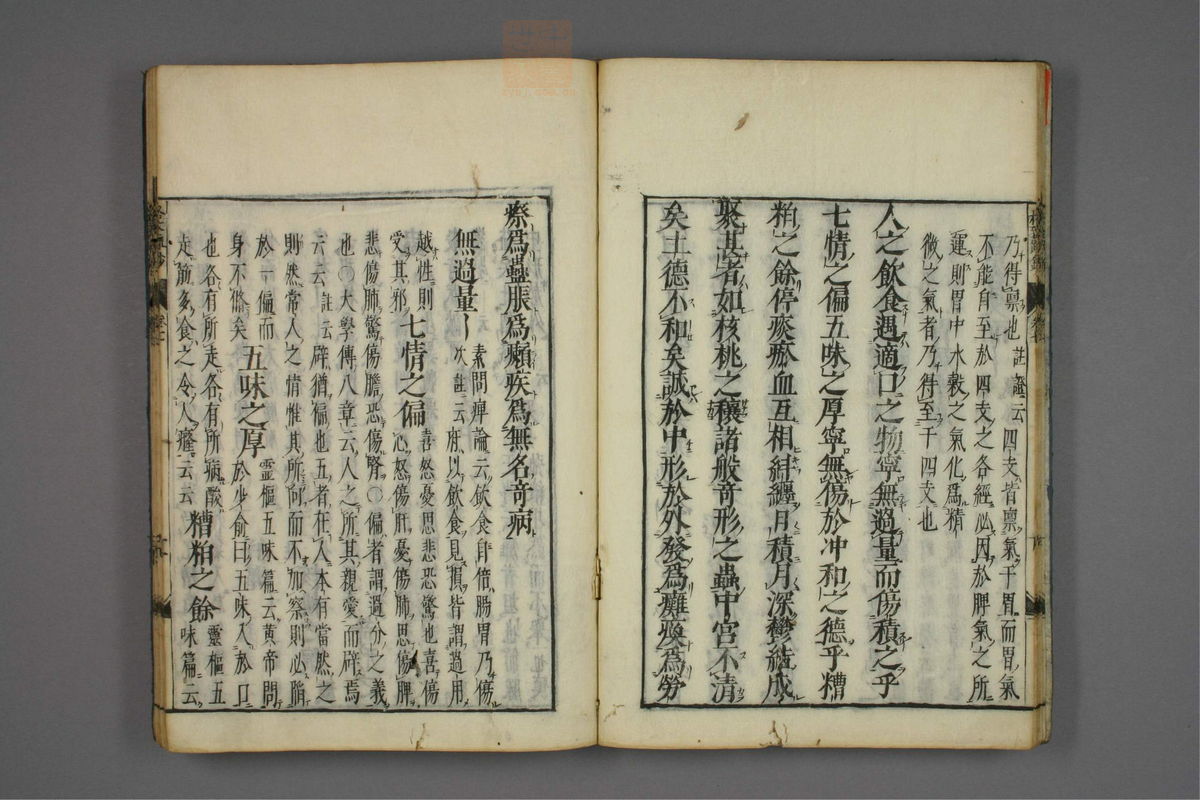 乃得禀也註證云四支皆禀氣于胃而胃氣
不能自至於四支之各經必因於脾氣之所
運則胃中水穀之氣化爲精
微之氣者乃得至于四支也
人之飲食遇適口之物寧無過量而傷積之乎
七情之偏五味之厚寧無傷於冲和之德乎糟
粕之餘停痰瘀血互相紏纒日積月深鬱結成
聚甚者如核桃之穰諸般奇形之蟲中宮不清
矣土德不和矣誠於中形於外發爲癰疽爲勞
瘵爲蠱脹爲癩疾爲無名奇病
無過量〜素問痺論云飲食自倍腸胃乃傷
次註云㫄以飲食見損皆謂過用
越性則
受其邪七情之偏喜怒憂思悲恐驚也喜傷
心怒傷肝憂傷肺思傷脾
悲傷肺驚傷膽恐傷腎〇偏者謂過分之義
也〇大學傳八章云人之所其親愛而辟焉
云云註云辟猶偏也五者在人本有當然之
則然常人之情惟其所向而不加察則必陷
於一偏而
身不脩矣五味之厚靈樞五味篇云黄帝問
於少俞曰五味入於口
也各有所走各有所病酸
走筋多食之令人癃云云糟粕之餘靈樞五
味篇云